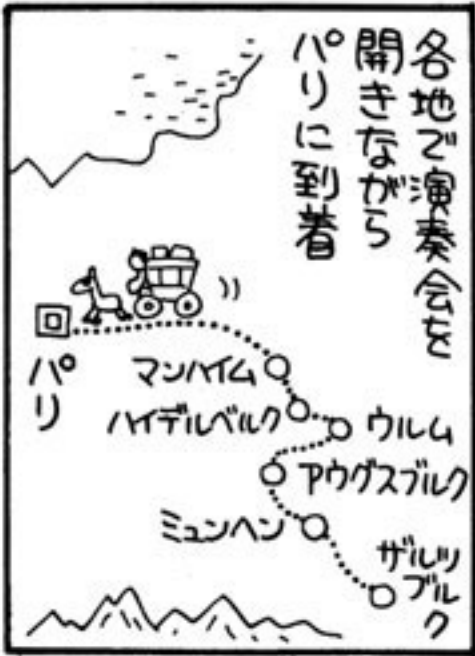 各地で演奏会を
開きながら
パリに到着
パリ
マンハイム
ハイデルベルク
ウルム
アウグスブルク
ミュンヘン
ザルツ
ブルク